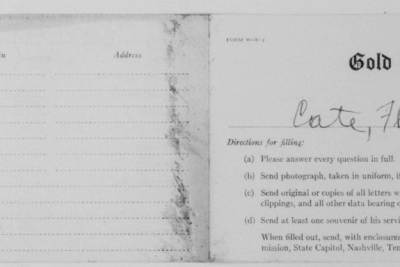 Address
Gold
Cate, Fl
Directions for filling:
(a) Please answer every question in full.
(b) Send photograph, taken in uniform, i
(c) Send original or copies of all letters w
clippings, and all other data bearing o
(d) Send at least one souvenir of his servi
When filled out, send, with enclosures
mission, State Capitol, Nashville, Ten